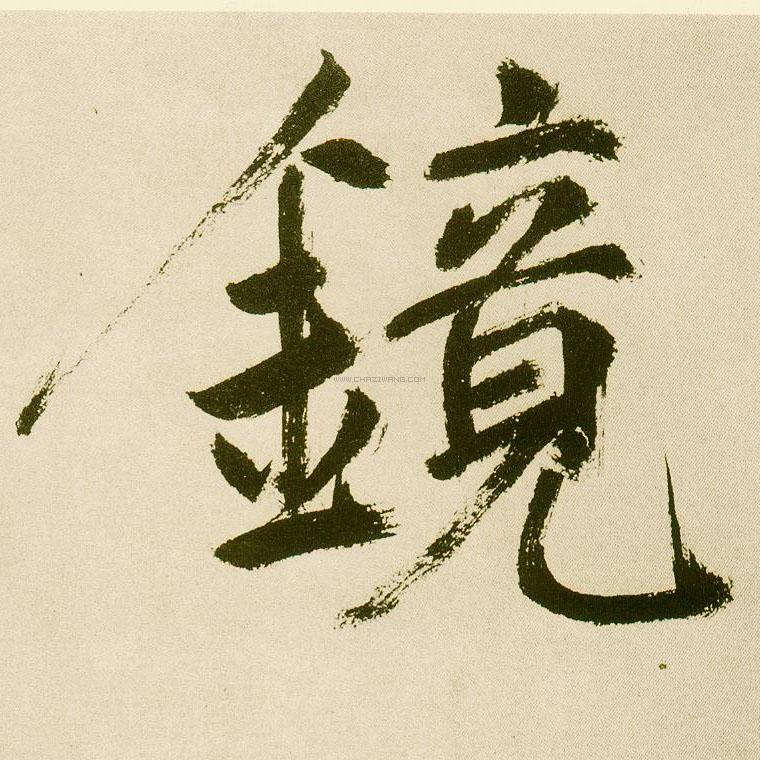 鏡
WWW.CHAZIWANG.COM